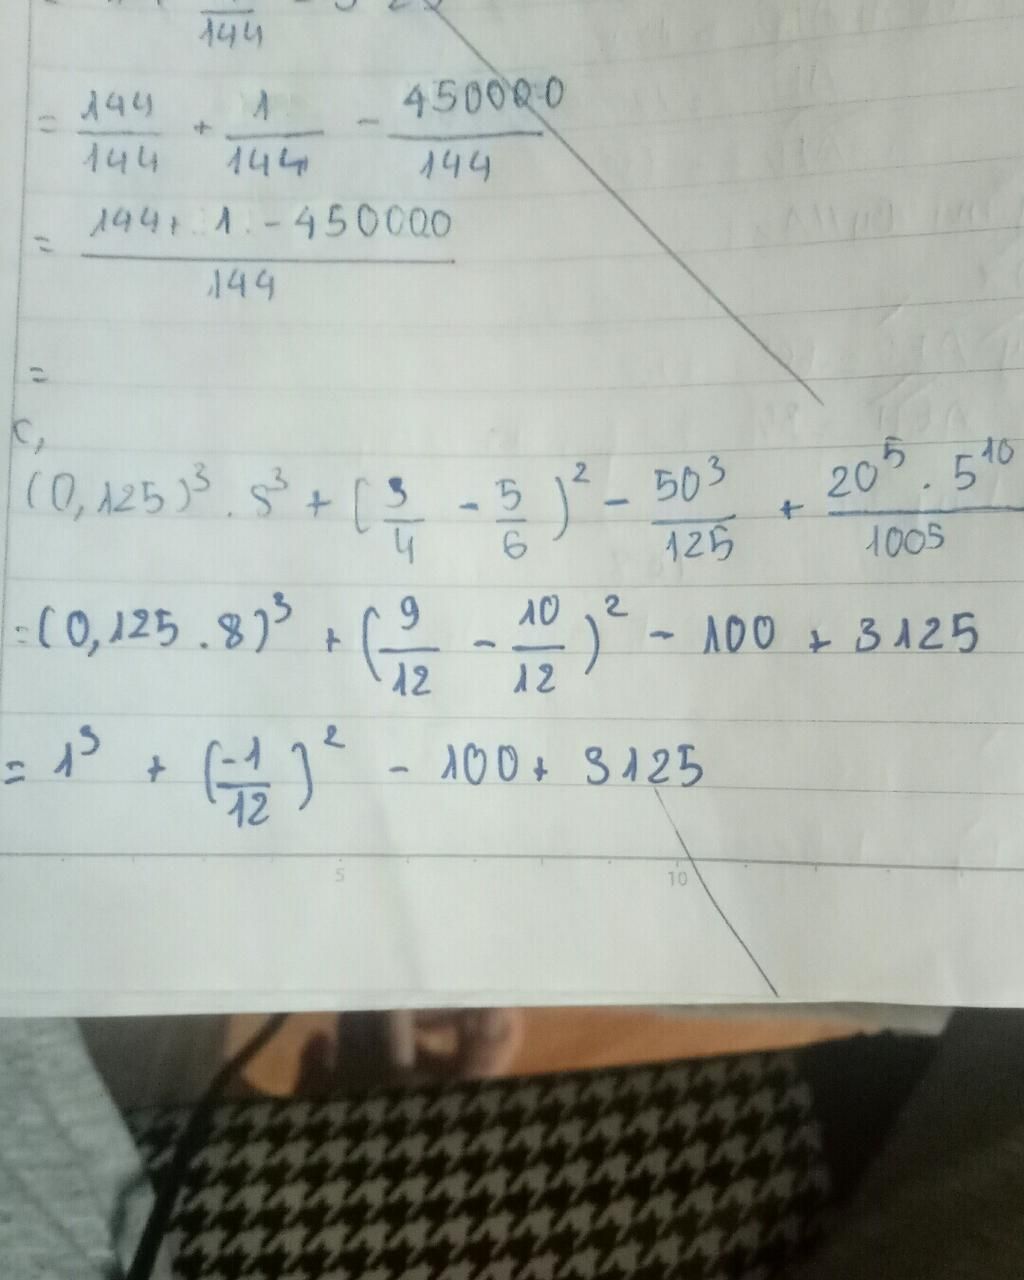 144
= 144/144 + 1/144 - 450000/144
= (144 + 1 - 450000)/144
=
c,
(0,125)³ . 8³ + (3/4 - 5/6)² - 50³/125 + (20⁵ . 5¹⁰)/100⁵
= (0,125 . 8)³ + (9/12 - 10/12)² - 100 + 3125
= 1³ + (-1/12)² - 100 + 3125
5 10